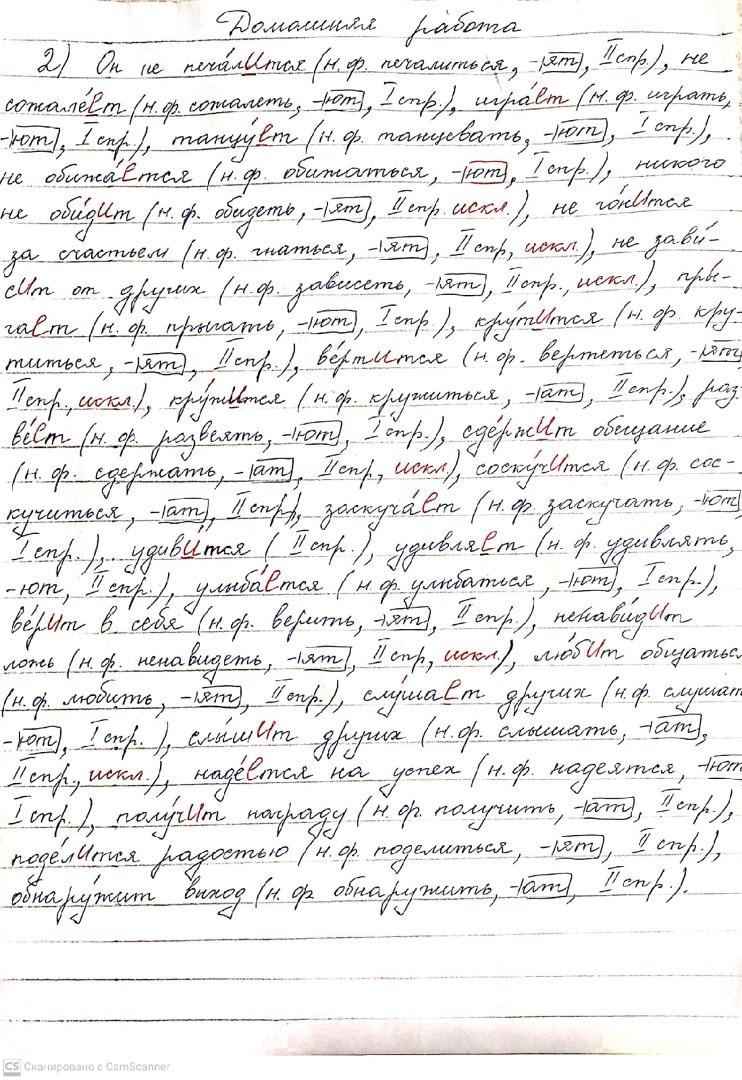 Домашняя работа
2) Он не печа́лится (н.ф. печалиться, -ят, II спр.), не
сожале́ет (н.ф. сожалеть, -ют, I спр.), игра́ет (н.ф. играть,
-ют, I спр.), танцу́ет (н.ф. танцевать, -ют, I спр.),
не обижа́ется (н.ф. обижаться, -ют, I спр.), никого
не оби́дит (н.ф. обидеть, -ят, II спр. искл.), не го́нится
за счастьем (н.ф. гнаться, -ят, II спр, искл.), не зави́-
сит от других (н.ф. зависеть, -ят, II спр., искл.), пры́-
гает (н.ф. прыгать, -ют, I спр.), кру́тится (н.ф. кру-
титься, -ят, II спр.), ве́ртится (н.ф. вертеться, -ят
II спр., искл.), кру́жится (н.ф. кружиться, -ат, II спр.), раз
ве́ет (н.ф. развеять, -ют, I спр.), сде́ржит обещание
(н.ф. сдержать, -ат, II спр, искл.), соску́чится (н.ф. сос-
кучиться, -ат, II спр), заскуча́ет (н.ф. заскучать, -ют,
I спр.), удиви́тся ( II спр.), удивляет (н.ф. удивлять,
-ют, II спр.), улыба́ется (н.ф. улыбаться, -ют, I спр.),
ве́рит в себя (н.ф. верить, -ят, II спр.), ненави́дит
ложь (н.ф. ненавидеть, -ят, II спр, искл.), лю́бит общатьс
(н.ф. любить, -ят, II спр.), слу́шает других (н.ф. слушат
-ют, I спр.), слы́шит других (н.ф. слышать, -ат,
II спр., искл.), наде́ется на успех (н.ф. надеятся, -ют
I спр.), полу́чит награду (н.ф. получить, -ат, II спр.),
поде́лится радостью (н.ф. поделиться, -ят, II спр.),
обнару́жит выход (н.ф обнаружить, -ат, II спр.).
CS Сканировано с CamScanner